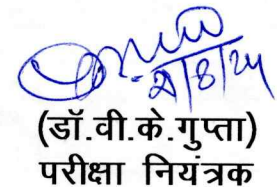 21/8/24
(डॉ.वी.के.गुप्ता)
परीक्षा नियंत्रक